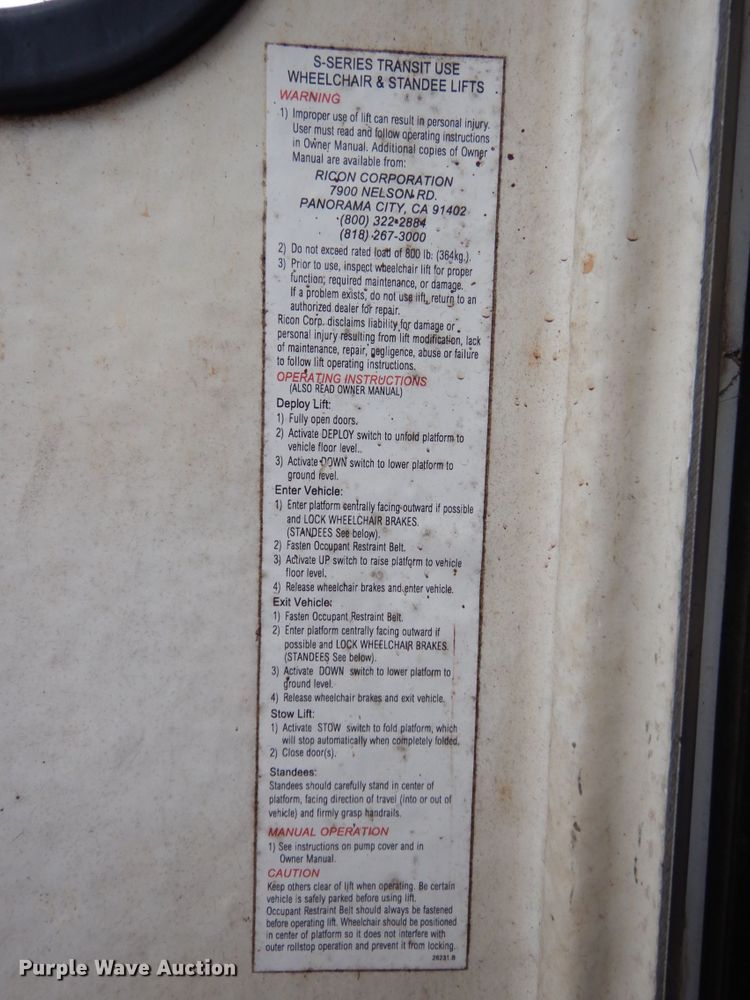 S-SERIES TRANSIT USE
WHEELCHAIR & STANDEE LIFTS
WARNING
1) Improper use of lift can result in personal injury.
User must read and follow operating instructions
in Owner Manual. Additional copies of Owner
Manual are available from:
RICON CORPORATION
7900 NELSON RD.
PANORAMA CITY, CA 91402
(800) 322-2884
(818) 267-3000
2) Do not exceed rated load of 800 lb. (364kg.).
3) Prior to use, inspect wheelchair lift for proper
function, required maintenance, or damage.
If a problem exists, do not use lift, return to an
authorized dealer for repair.
Ricon Corp. disclaims liability for damage or
personal injury resulting from lift modification, lack
of maintenance, repair, negligence, abuse or failure
to follow lift operating instructions.
OPERATING INSTRUCTIONS
(ALSO READ OWNER MANUAL)
Deploy Lift:
1) Fully open doors.
2) Activate DEPLOY switch to unfold platform to
vehicle floor level.
3) Activate DOWN switch to lower platform to
ground level.
Enter Vehicle:
1) Enter platform centrally facing outward if possible
and LOCK WHEELCHAIR BRAKES.
(STANDEES See below).
2) Fasten Occupant Restraint Belt.
3) Activate UP switch to raise platform to vehicle
floor level.
4) Release wheelchair brakes and enter vehicle.
Exit Vehicle:
1) Fasten Occupant Restraint Belt.
2) Enter platform centrally facing outward if
possible and LOCK WHEELCHAIR BRAKES
(STANDEES See below).
3) Activate DOWN switch to lower platform to
ground level.
4) Release wheelchair brakes and exit vehicle.
Stow Lift:
1) Activate STOW switch to fold platform, which
will stop automatically when completely folded.
2) Close door(s).
Standees:
Standees should carefully stand in center of
platform, facing direction of travel (into or out of
vehicle) and firmly grasp handrails.
MANUAL OPERATION
1) See instructions on pump cover and in
Owner Manual.
CAUTION
Keep others clear of lift when operating. Be certain
vehicle is safely parked before using lift.
Occupant Restraint Belt should always be fastened
before operating lift. Wheelchair should be positioned
in center of platform so it does not interfere with
outer rollstop operation and prevent it from locking.
28231.B
Purple Wave Auction